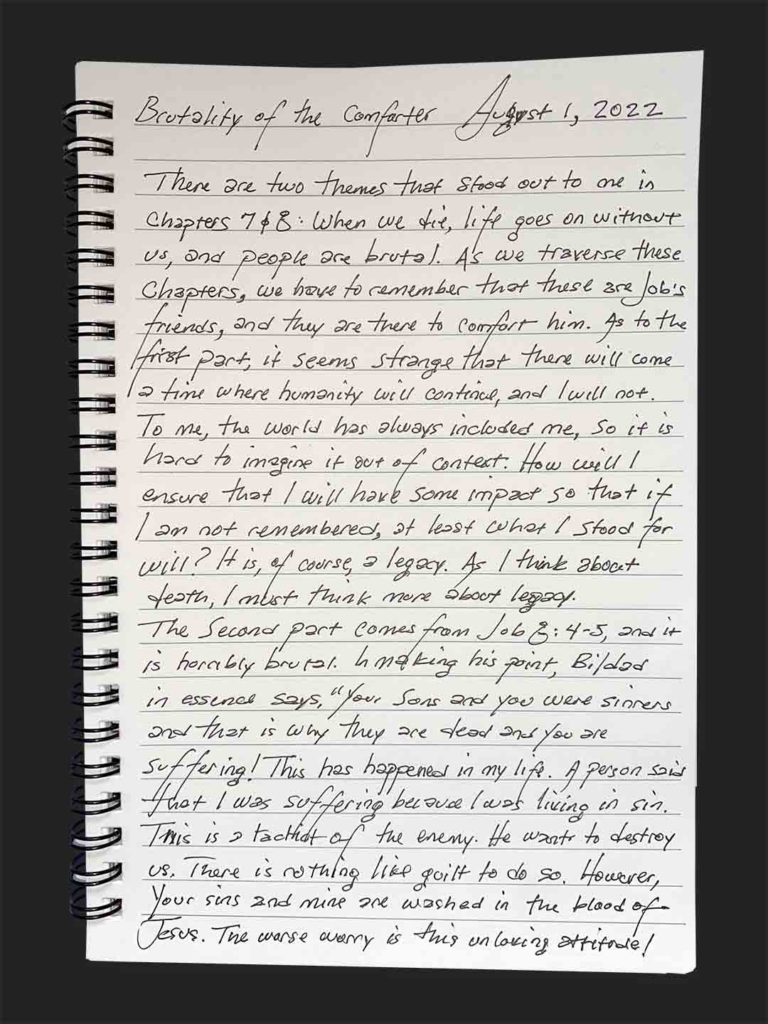 Brutality of the Comforter August 1, 2022
There are two themes that stood out to me in
Chapters 7 & 8: When we die, life goes on without
us, and people are brutal. As we traverse these
Chapters, we have to remember that these are Job's
friends, and they are there to comfort him. As to the
first part, it seems strange that there will come
a time where humanity will continue, and I will not.
To me, the world has always included me, so it is
hard to imagine it out of context. How will I
ensure that I will have some impact so that if
I am not remembered, at least what I stood for
will? It is, of course, a legacy. As I think about
death, I must think more about legacy.
The Second part comes from Job 8:4-5, and it
is horribly brutal. In making his point, Bildad
in essence says, "Your Sons and you were sinners
and that is why they are dead and you are
suffering! This has happened in my life. A person said
that I was suffering because I was living in sin.
This is a of the enemy. He wants to destroy
us. There is nothing like guilt to do so. However,
Your sins and mine are washed in the blood of
Jesus. The worse worry is this unloving attitude!